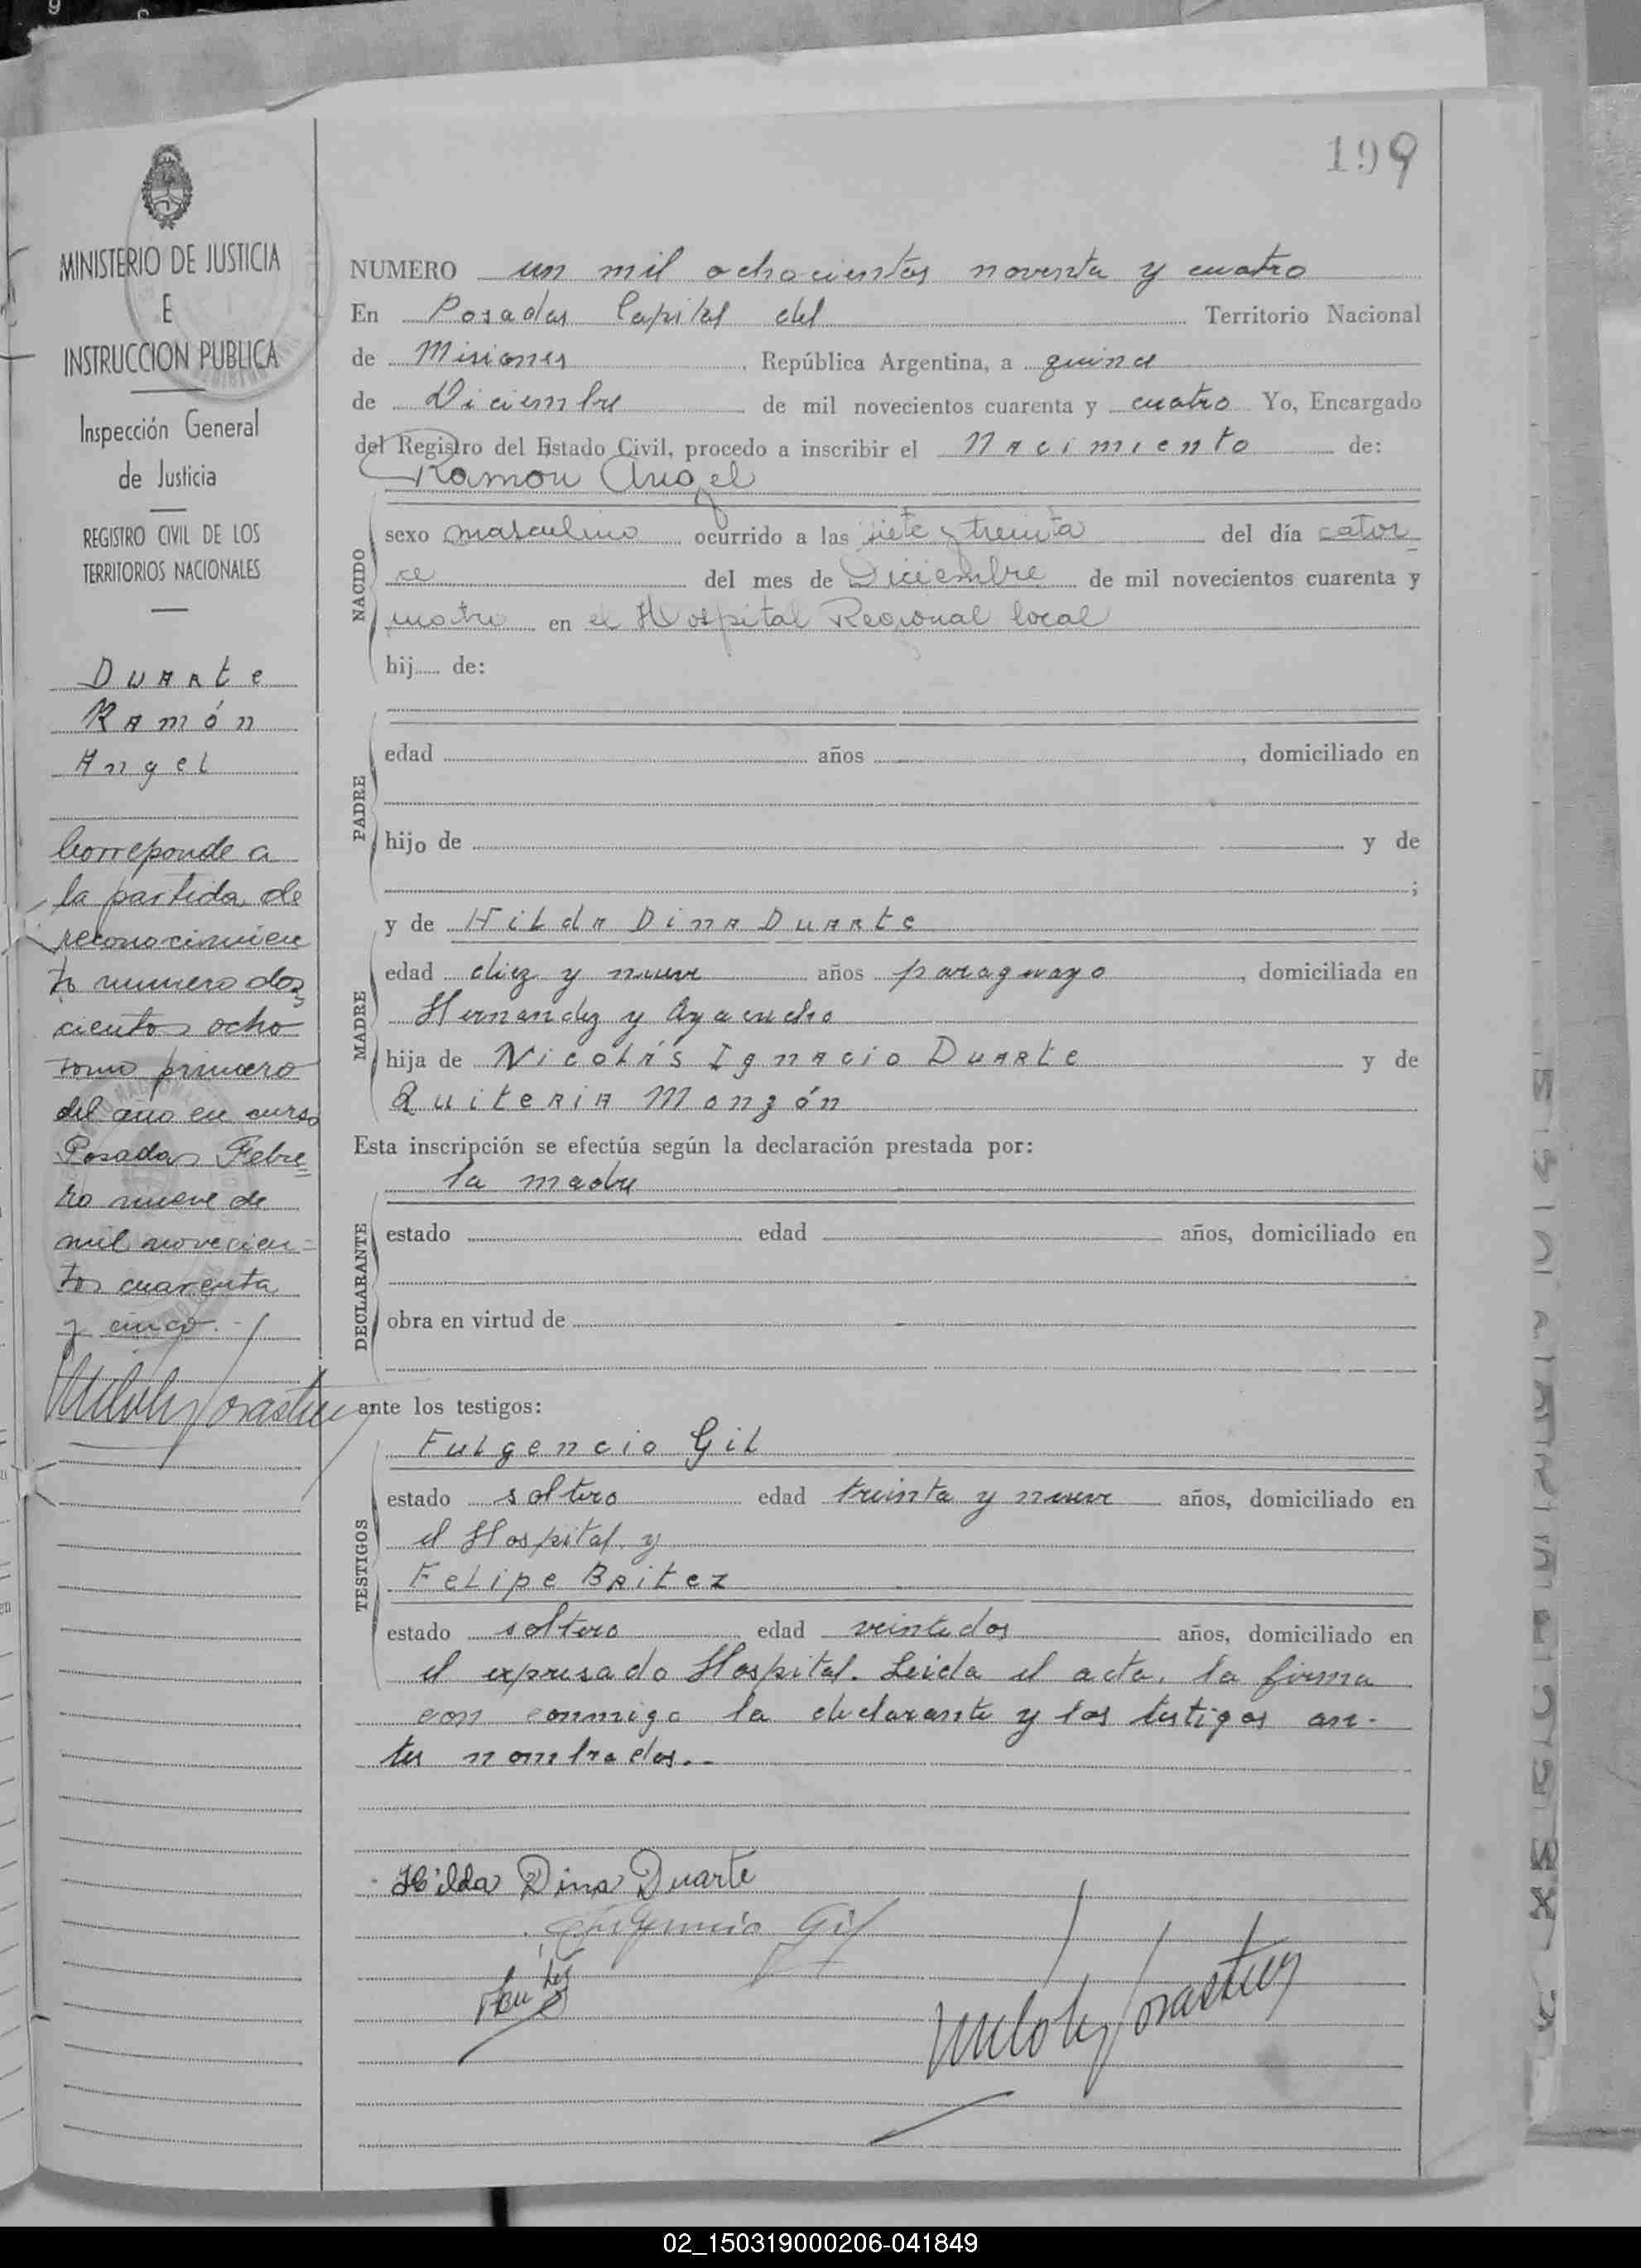 199
MINISTERIO DE JUSTICIA
E
INSTRUCCION PUBLICA
Inspección General
de Justicia
REGISTRO CIVIL DE LOS
TERRITORIOS NACIONALES
Duarte
Ramón
Angel
Correponde a
la partida de
reconocimien
to numero dos
cientos ocho
tomo primero
del año en curso
Posadas Febre
ro nueve de
mil novecien=
tos cuarenta
y cinco.-
NUMERO un mil ochocientos noventa y cuatro
En Posadas Capital del Territorio Nacional
de Misiones, República Argentina, a quince
de Diciembre de mil novecientos cuarenta y cuatro Yo, Encargado
del Registro del Estado Civil, procedo a inscribir el Nacimiento de:
Ramon Angel
NACIDO
sexo masculino ocurrido a las siete y treinta del día cator
ce del mes de Diciembre de mil novecientos cuarenta y
cuatro en el Hospital Regional local
hij de:
PADRE
edad años , domiciliado en
hijo de y de
;
MADRE
y de Hilda Dina Duarte
edad diez y nueve años paraguayo, domiciliada en
Hernandez y Ayacucho
hija de Nicolás Ignacio Duarte y de
Quiteria Monzón
Esta inscripción se efectúa según la declaración prestada por:
la madre
DECLARANTE
estado edad años, domiciliado en
obra en virtud de
ante los testigos:
TESTIGOS
Fulgencio Gil
estado soltero edad treinta y nueve años, domiciliado en
el Hospital y
Felipe Britez
estado soltero edad veintidos años, domiciliado en
el expresado Hospital. Leida el acta, la firma
con conmigo la declarante y los testigos an-
tes nombrados.-
Hilda Dina Duarte
Fulgencio Gil
02_150319000206-041849